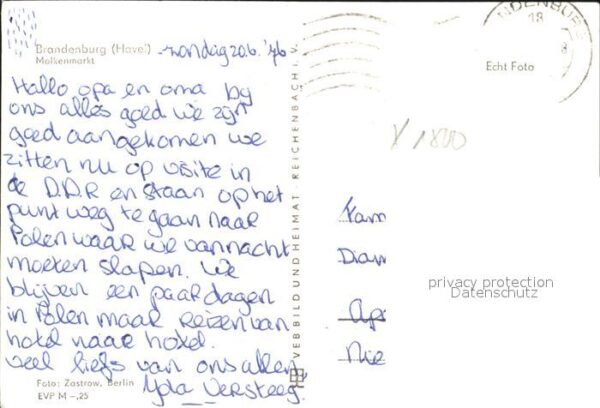 Brandenburg (Havel) - zondag 20.6. '76
Molkenmarkt
Hallo opa en oma bij
ons alles goed we zijn
goed aangekomen we
zitten nu op visite in
de D.D.R en staan op het
punt weg te gaan naar
Polen waar we vannacht
moeten slapen. We
blijven een paar dagen
in Polen maar reizen van
hotel naar hotel.
veel liefs van ons allen,
Yola Versteeg.
Foto: Zastrow, Berlin
EVP M -,25
VEB BILD UND HEIMAT, REICHENBACH I. V.
NDENBURG
18
Echt Foto
V 1800
Fam
Dam
privacy protection
Datenschutz
Ap
Nie